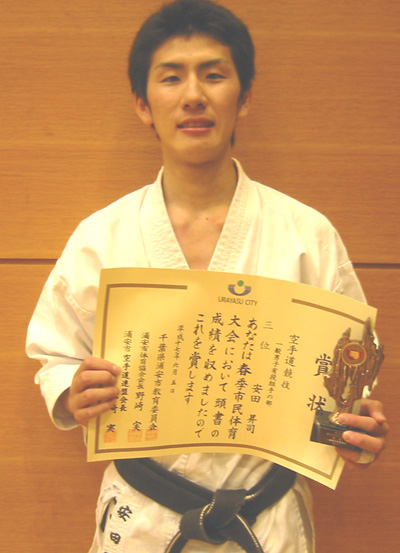 URAYASU CITY
賞状
空手道競技
一般男子有段組手の部
三位
安田 昇司
あなたは春季市民体育
大会において頭書の
成績を収めましたので
これを賞します
平成十七年六月五日
千葉県浦安市教育委員会
浦安市体育協会会長 野﨑 実
浦安市空手道連盟会長
﨑 実
安田